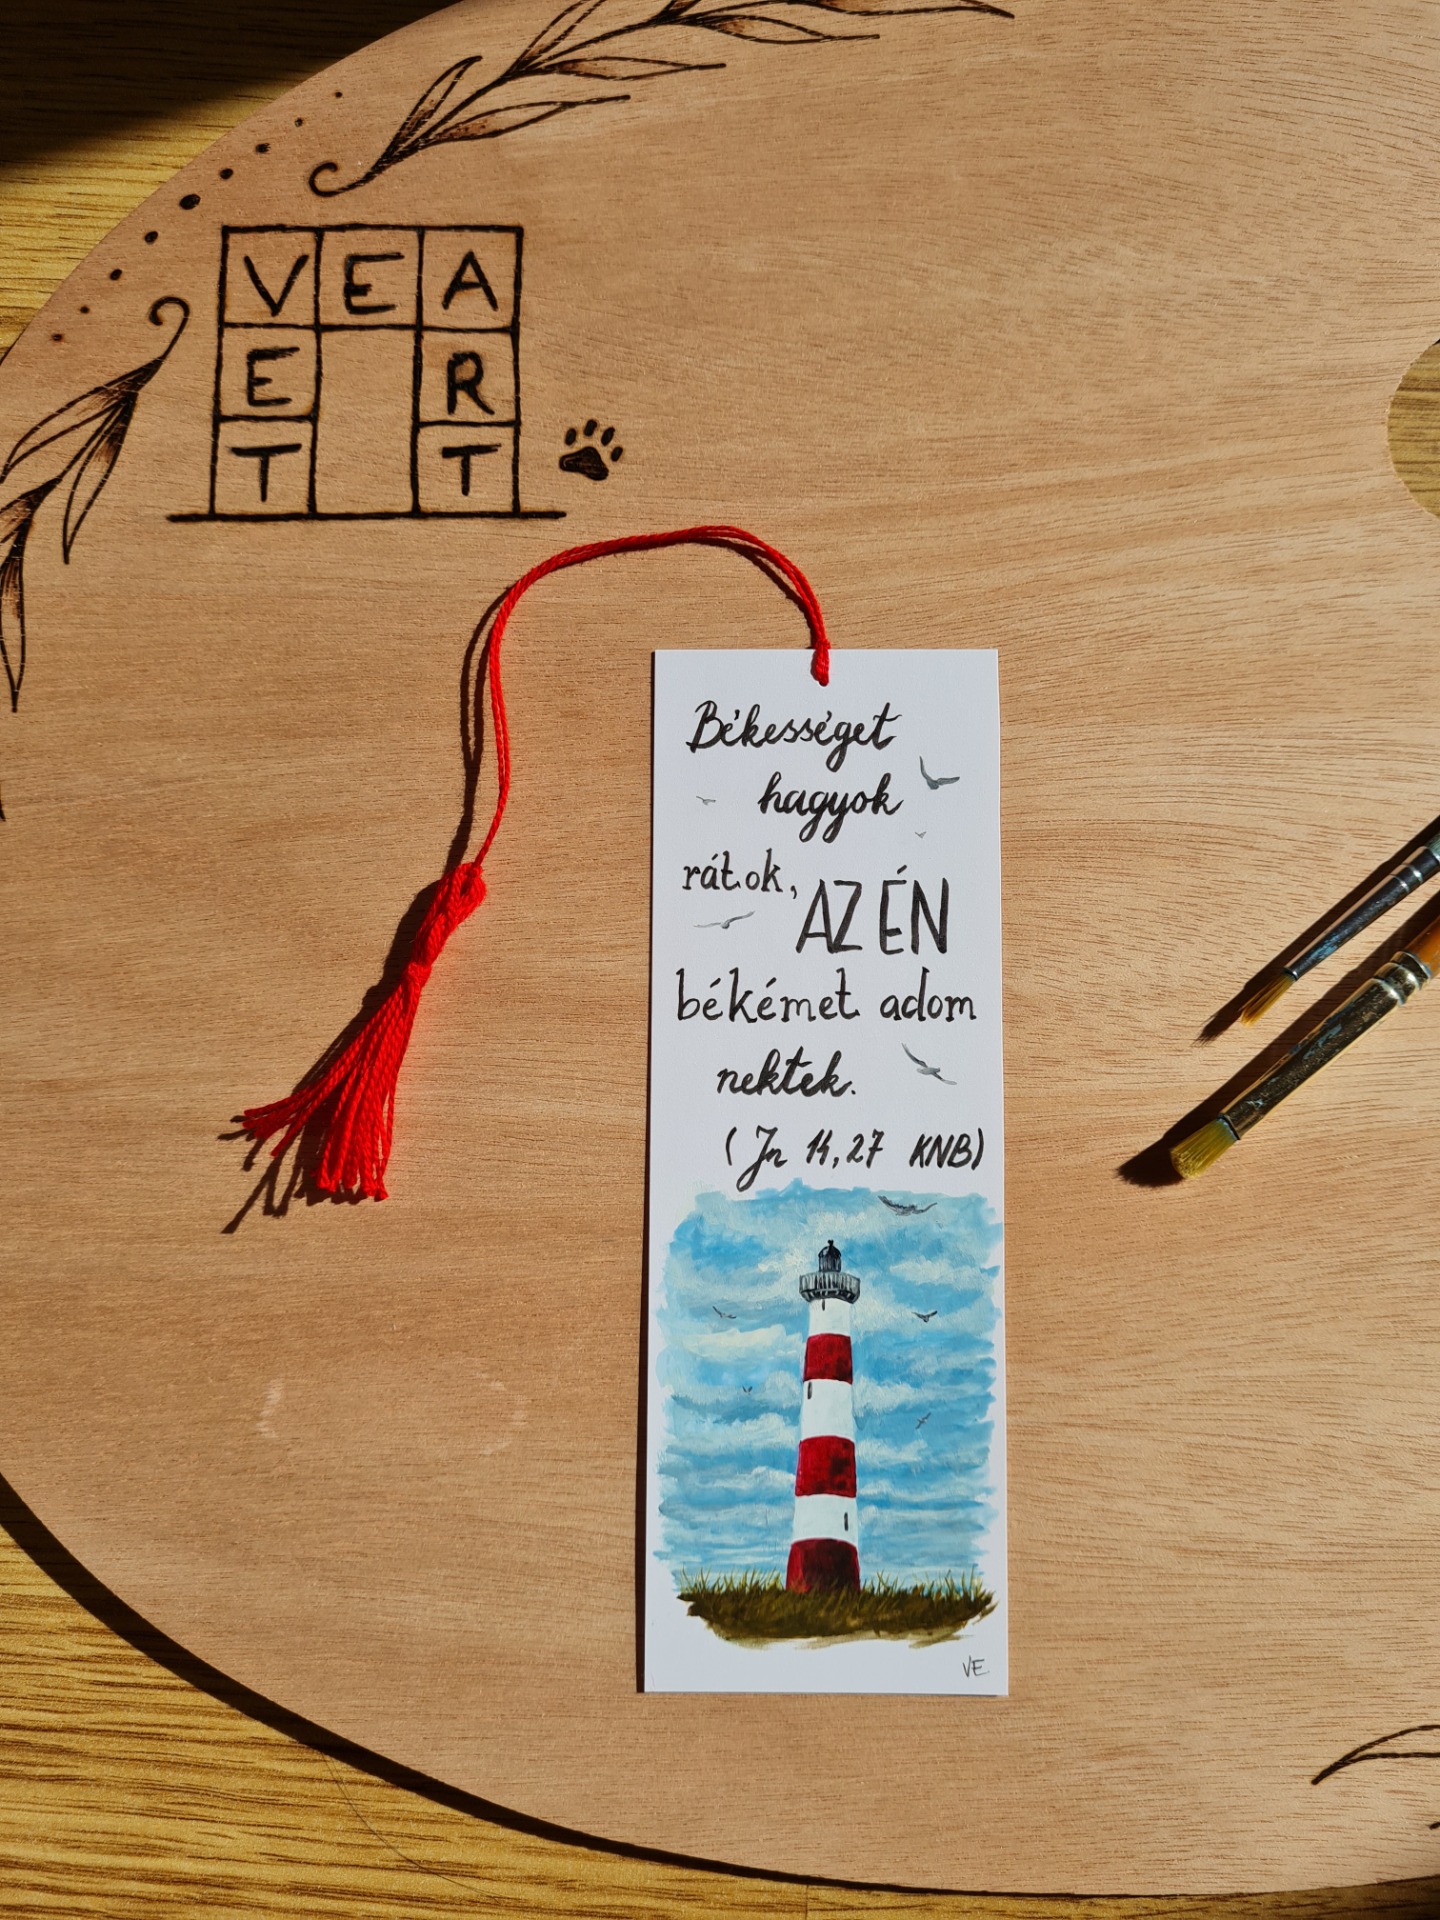 VEA
ER
TT
Békességet
hagyok
rátok, AZ ÉN
békémet adom
nektek.
(Jn 14,27 KNB)
VE